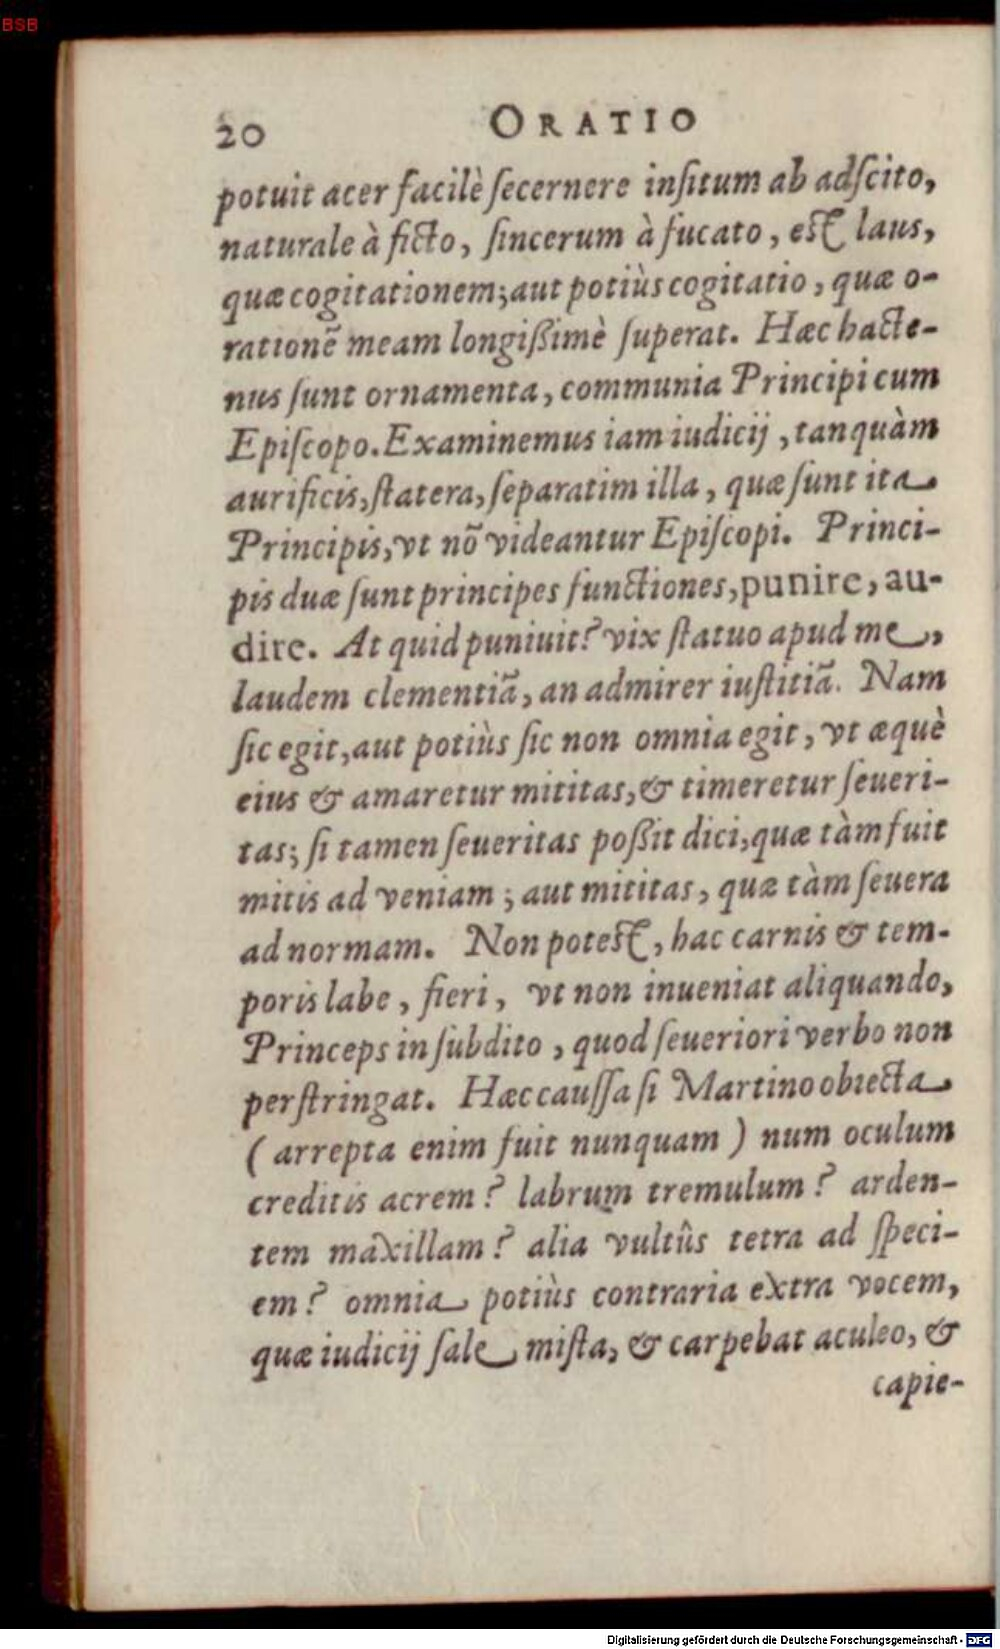 BSB
20 ORATIO
potuit acer facilè ſecernere inſitum ab adſcito,
naturale à ficto, ſincerum à fucato, eſt laus,
quæ cogitationem; aut potiùs cogitatio, quæ o-
rationẽ meam longißimè ſuperat. Hæc hacte-
nus ſunt ornamenta, communia Principi cum
Epiſcopo. Examinemus iam iudicij, tanquàm
aurificis, ſtatera, ſeparatim illa, quæ ſunt ita
Principis, vt nõ videantur Epiſcopi. Princi-
pis duæ ſunt principes functiones, punire, au-
dire. At quid puniuit? vix ſtatuo apud me,
laudem clementiã, an admirer iuſtitiã. Nam
ſic egit, aut potiùs ſic non omnia egit, vt æquè
eius & amaretur mititas, & timeretur ſeueri-
tas; ſi tamen ſeueritas poßit dici, quæ tàm fuit
mitis ad veniam; aut mititas, quæ tàm ſeuera
ad normam. Non poteſt, hac carnis & tem-
poris labe, fieri, vt non inueniat aliquando,
Princeps in ſubdito, quod ſeueriori verbo non
perſtringat. Hæc cauſſa ſi Martino obiecta
(arrepta enim fuit nunquam) num oculum
creditis acrem? labrum tremulum? arden-
tem maxillam? alia vultûs tetra ad ſpeci-
em? omnia potiùs contraria extra vocem,
quæ iudicij ſale miſta, & carpebat aculeo, &
capie-
Digitalisierung gefördert durch die Deutsche Forschungsgemeinschaft - DFG